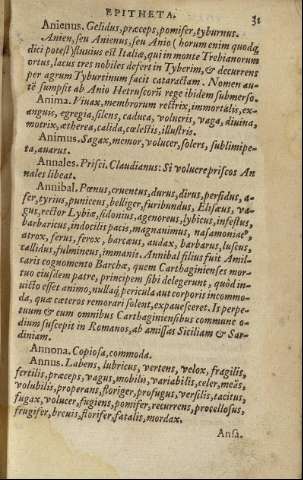 EPITHETA.
31
Anienus. Gelidus, præceps, pomifer, tyburnus.
Anien, seu Anienus, seu Anio (horum enim quodq;
dici potest) fluuius est Italiæ, qui in monte Trebianorum
ortus, lacus tres nobiles defert in Tyberim, & decurrens
per agrum Tyburtinum facit cataractam. Nomen au-
tẽ sumpsit ab Anio Hetruscorũ rege ibidem submerso.
Anima. Viuax, membrorum rectrix, immortalis, ex-
anguis, egregia, silens, caduca, volucris, vaga, diuina,
motrix, ætherea, calida, cœlestis, illustris.
Animus. Sagax, memor, volucer, solers, sublimipe-
ta, auarus.
Annales. Prisci. Claudianus: Si volucre priscos An
nales libeat.
Annibal. Pœnus, cruentus, durus, dirus, perfidus, a-
fer, tyrius, punicens, belliger, furibundus, Elisæus, va-
gus, rector Lybiæ, sidonius, agenoreus, lybicus, infestus,
barbaricus, indocilis pacis, magnanimus, nasamoniacꝰ,
atrox, ferus, ferox, barcæus, audax, barbarus, luscus,
callidus, fulmineus, immanis. Annibal filius fuit Amil-
caris cognomento Barchæ, quem Carthaginienses mor-
tuo eiusdem patre, principem sibi delegerunt, quòd in-
uicto esset animo, nullaq; pericula aut corporis incommo-
da, quæ cæteros remorari solent, expauesceret. Is perpe-
tuum & cum omnibus Carthaginensibus commune o-
dium suscepit in Romanos, ab amissas Siciliam & Sar-
diniam.
Annona. Copiosa, commoda.
Annus. Labens, lubricus, vertens, velox, fragilis,
fertilis, præceps, vagus, mobilis, variabilis, celer, meãs,
volubilis, properans, floriger, profugus, versilis, tacitus,
fugax, volucer, fugiens, pomifer, recurrens, procellosus,
frugifer, breuis, florifer, fatalis, mordax.
Ansa.